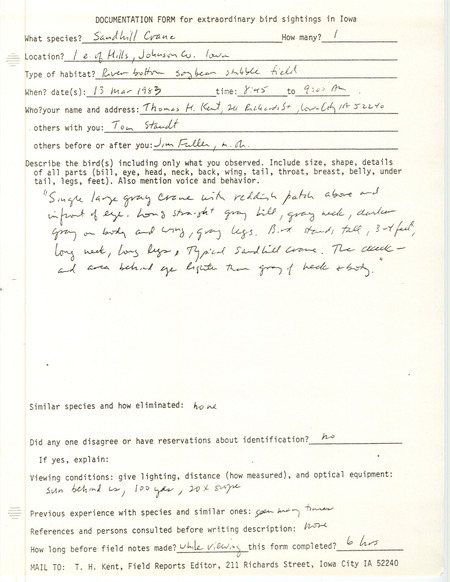 DOCUMENTATION FORM for extraordinary bird sightings in Iowa
What species? Sandhill Crane How many? 1
Location? 1 e. of Hills, Johnson Co. Iowa
Type of habitat? River bottom soybean stubble field
When? date(s): 13 Mar 1983 time: 8:45 to 9:00 AM
Who? your name and address: Thomas H. Kent, 211 Richards St, Iowa City IA 52240
others with you: Tom Staudt
others before or after you: Jim Fuller, m. ob.
Describe the bird(s) including only what you observed. Include size, shape, details
of all parts (bill, eye, head, neck, back, wing, tail, throat, breast, belly, under
tail, legs, feet). Also mention voice and behavior.
"Single large gray crane with reddish patch above and
in front of eye. Long straight gray bill, gray neck, darker
gray on body and wing, gray legs. Bird stands tall, 3-4 feet,
long neck, long legs, typical Sandhill Crane. The cheek
and area behind eye lighter than gray of neck & body."
Similar species and how eliminated: none
Did any one disagree or have reservations about identification? no
If yes, explain:
Viewing conditions: give lighting, distance (how measured), and optical equipment:
sun behind us, 100 yds, 20x scope
Previous experience with species and similar ones: seen many times
References and persons consulted before writing description: none
How long before field notes made? while viewing this form completed? 6 hrs
MAIL TO: T. H. Kent, Field Reports Editor, 211 Richards Street, Iowa City IA 52240